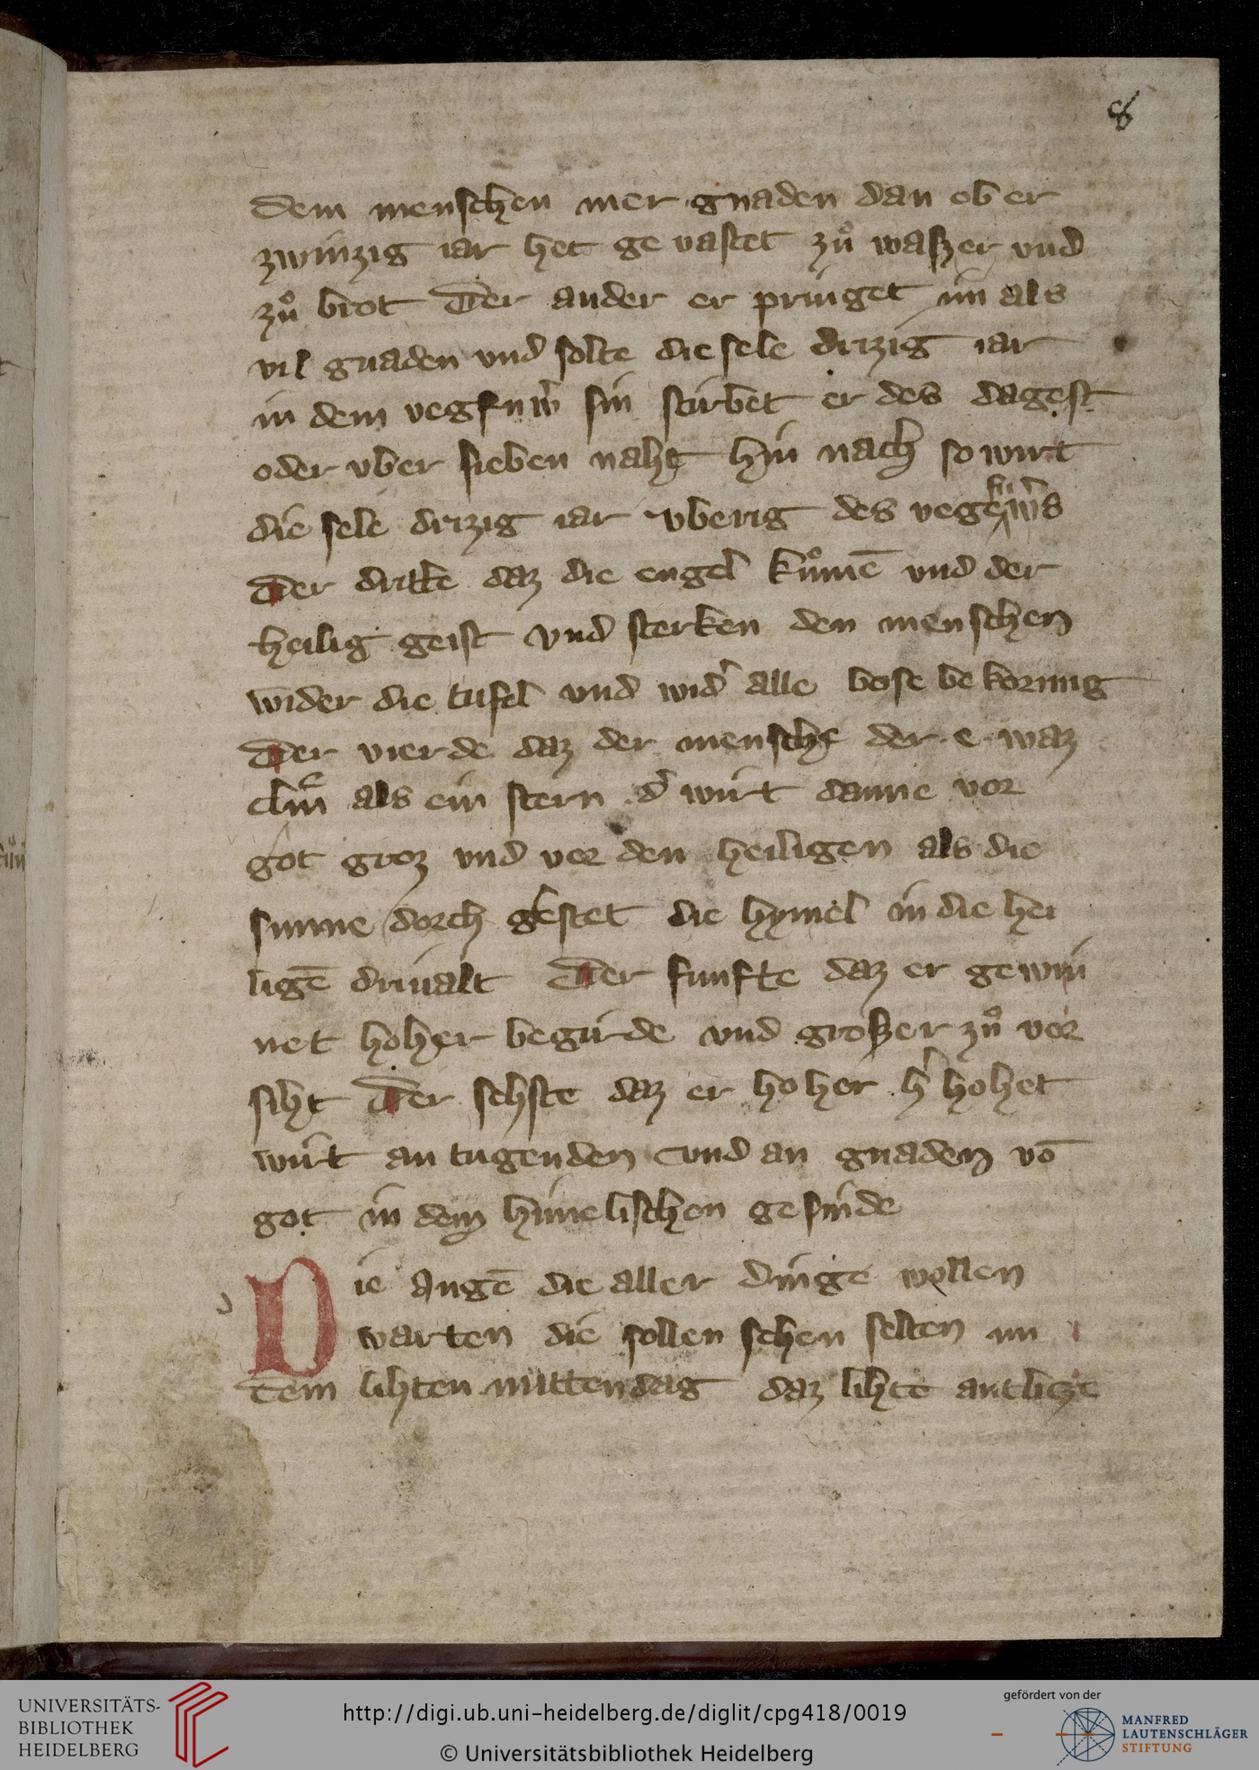 8
dem menschen mer gnaden dan ob er
zwinzig iar het ge vastet zuͦ waſzer vnd
zuͦ brot Der ander er pringet im als
vil gnaden vnd solte die sele drizig iar
in dem vegfuͥr sin stirbet er des dagest
oder vber sieben naht hin nach so wirt
die sele drizig iar vberig des
Der dritte daz die engel kuͦmē vnd der
heilig geist vnd sterken den menschen
wider die tufel vnd wid' alle bose be korung
Der vierde daz der mensche der e waz
als ein stern d' wirt danne vor
got groz vnd vor den heiligen als die
sunne dorch glestet die hymel in die hei
ligē driualt Der funfte daz er gewin
net hoher begirde vnd groſzer zuͦ vor
siht Der sehste daz er hoher h' hohet
wirt an tugenden vnd an gnaden vō
got in dem himelischen gesinde
Die augē die aller dinge wollen
warten die sollen sehen selten im
dem lihten mittendag daz lihte antlicze
UNIVERSITÄTS-
BIBLIOTHEK
HEIDELBERG
http://digi.ub.uni-heidelberg.de/diglit/cpg418/0019
© Universitätsbibliothek Heidelberg
gefördert von der
MANFRED
LAUTENSCHLÄGER
STIFTUNG